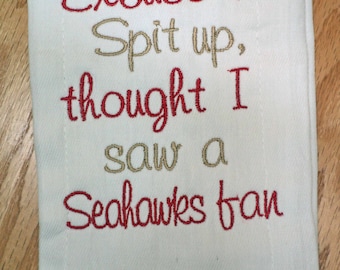 Spit up,
thought I
saw a
Seahawks fan